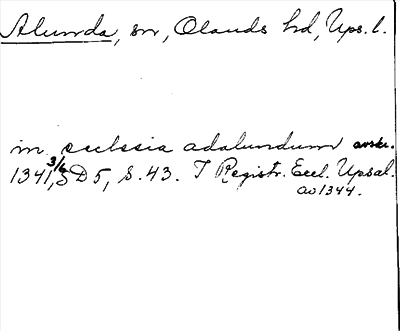 Alunda, sn, Olands hd, Ups. l.
in ecclesia adalundum avskr.
1341 3/6, SD 5, S. 43. I Registr. Eccl. Upsal.
av 1344.